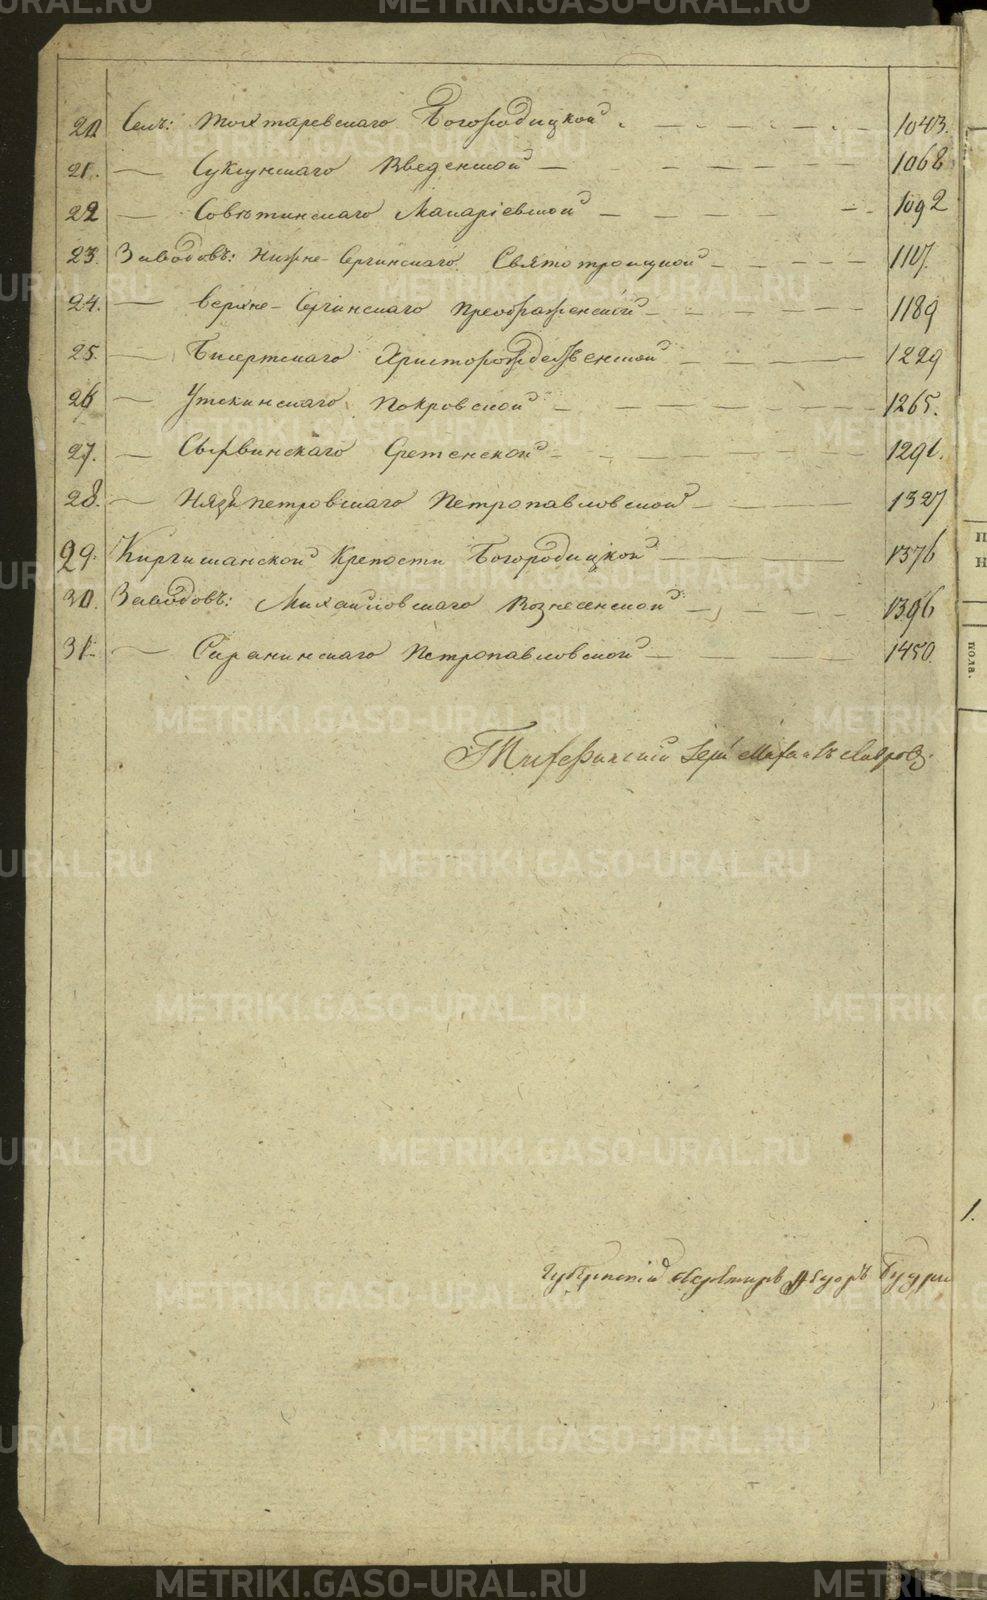 20. Селъ: Тохтаревскаго Богородицкой 1043.
21. — Суксунскаго Введенской — 1068
22 — Совѣтинскаго Макаріевской — 1092
23. Заводовъ: Нижне-Сергинскаго Святотроицкой — 1117.
24. — Верхне-Сергинскаго Преображенской — 1189
25. — Бисертскаго Христорождественской — 1229
26 — Уткинскаго Покровской — 1265.
27. — Сылвинскаго Сретенской — 1291.
28. — Нязепетровскаго Петропавловской — 1327
29. Киргишанской Крепости Богородицкой — 1376
30. Заводовъ: Михайловскаго Вознесенской — 1396
31. — Саранинскаго Петропавловской — 1450.
Губернскій Секретарь
1.
П
Н
пола.
METRIKI.GASO-URAL.RU